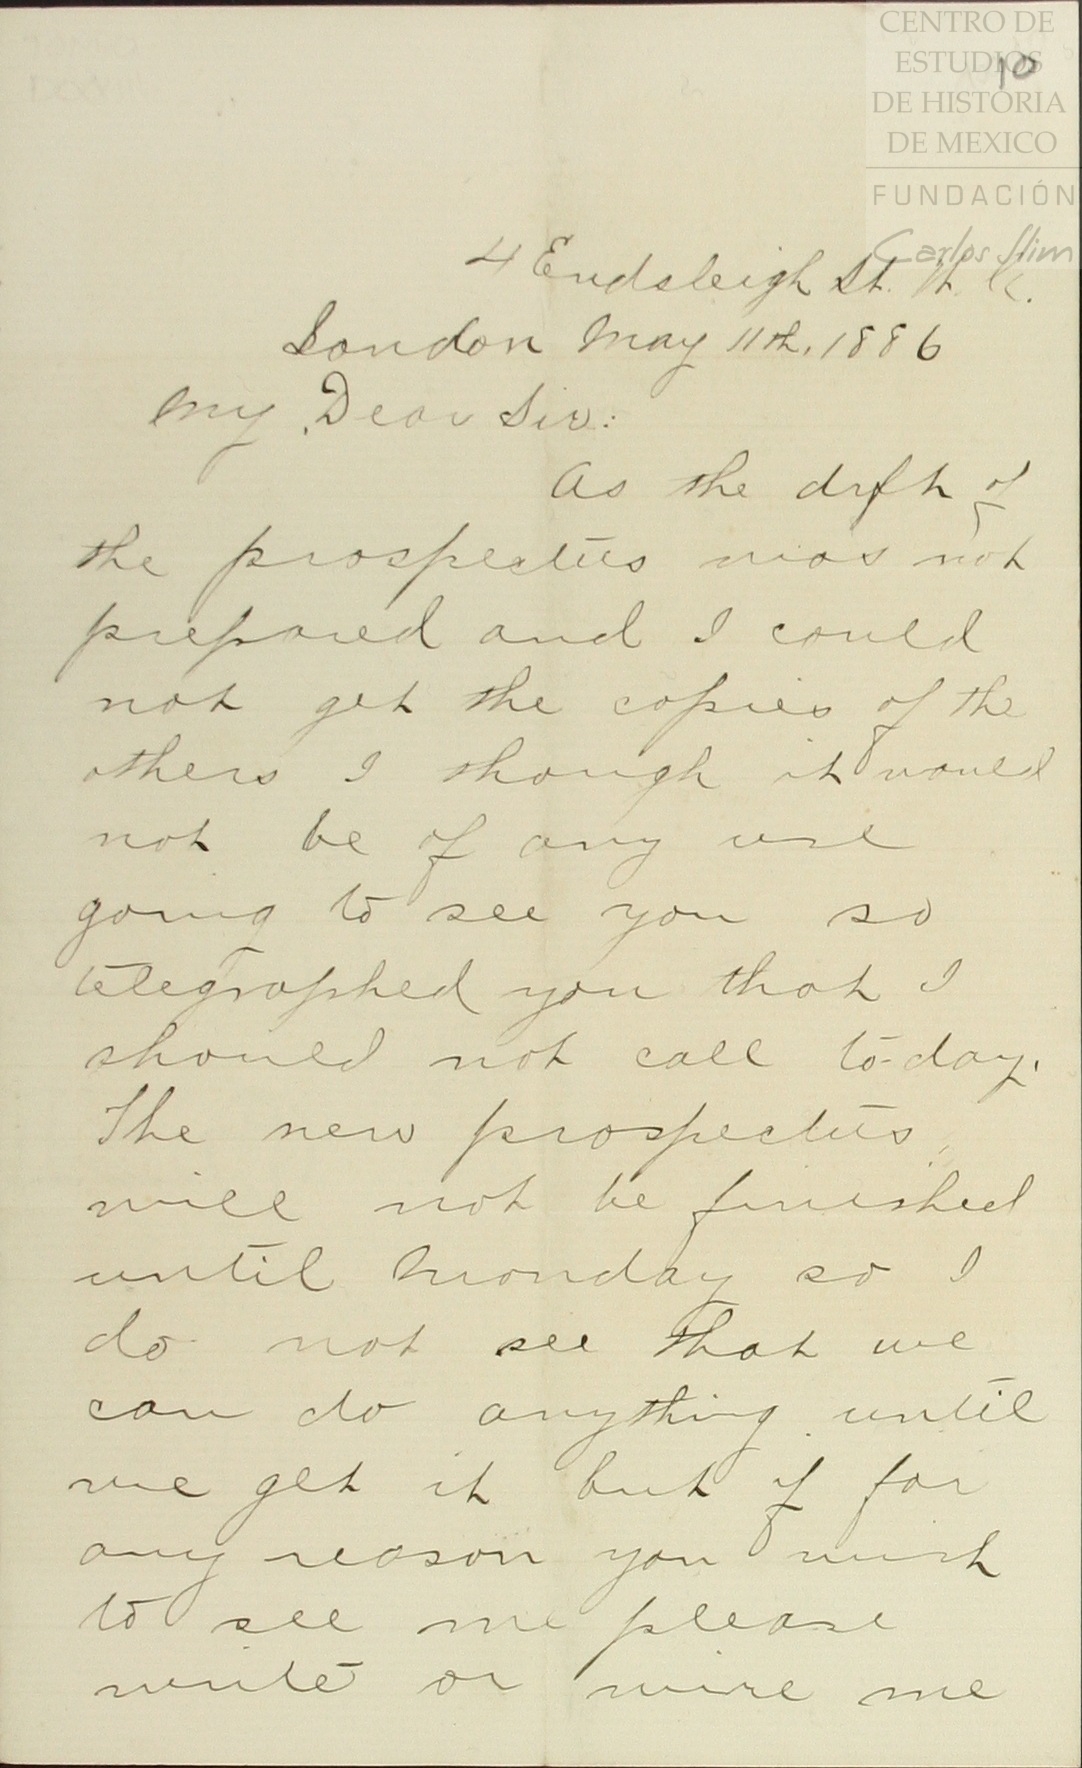 CENTRO DE
ESTUDIOS
DE HISTORIA
DE MEXICO
FUNDACIÓN
Carlos Slim
10
4 Endsleigh St. W. C.
London May 11th, 1886
My Dear Sir:
As the drfh of
the prospectus was not
prepared and I could
not get the copies of the
others I though it would
not be of any use
going to see you so
telegraphed you that I
should not call to-day.
The new prospectus
will not be finished
until Monday so I
do not see that we
can do anything until
we get it but if for
any reason you wish
to see me please
write or wire me